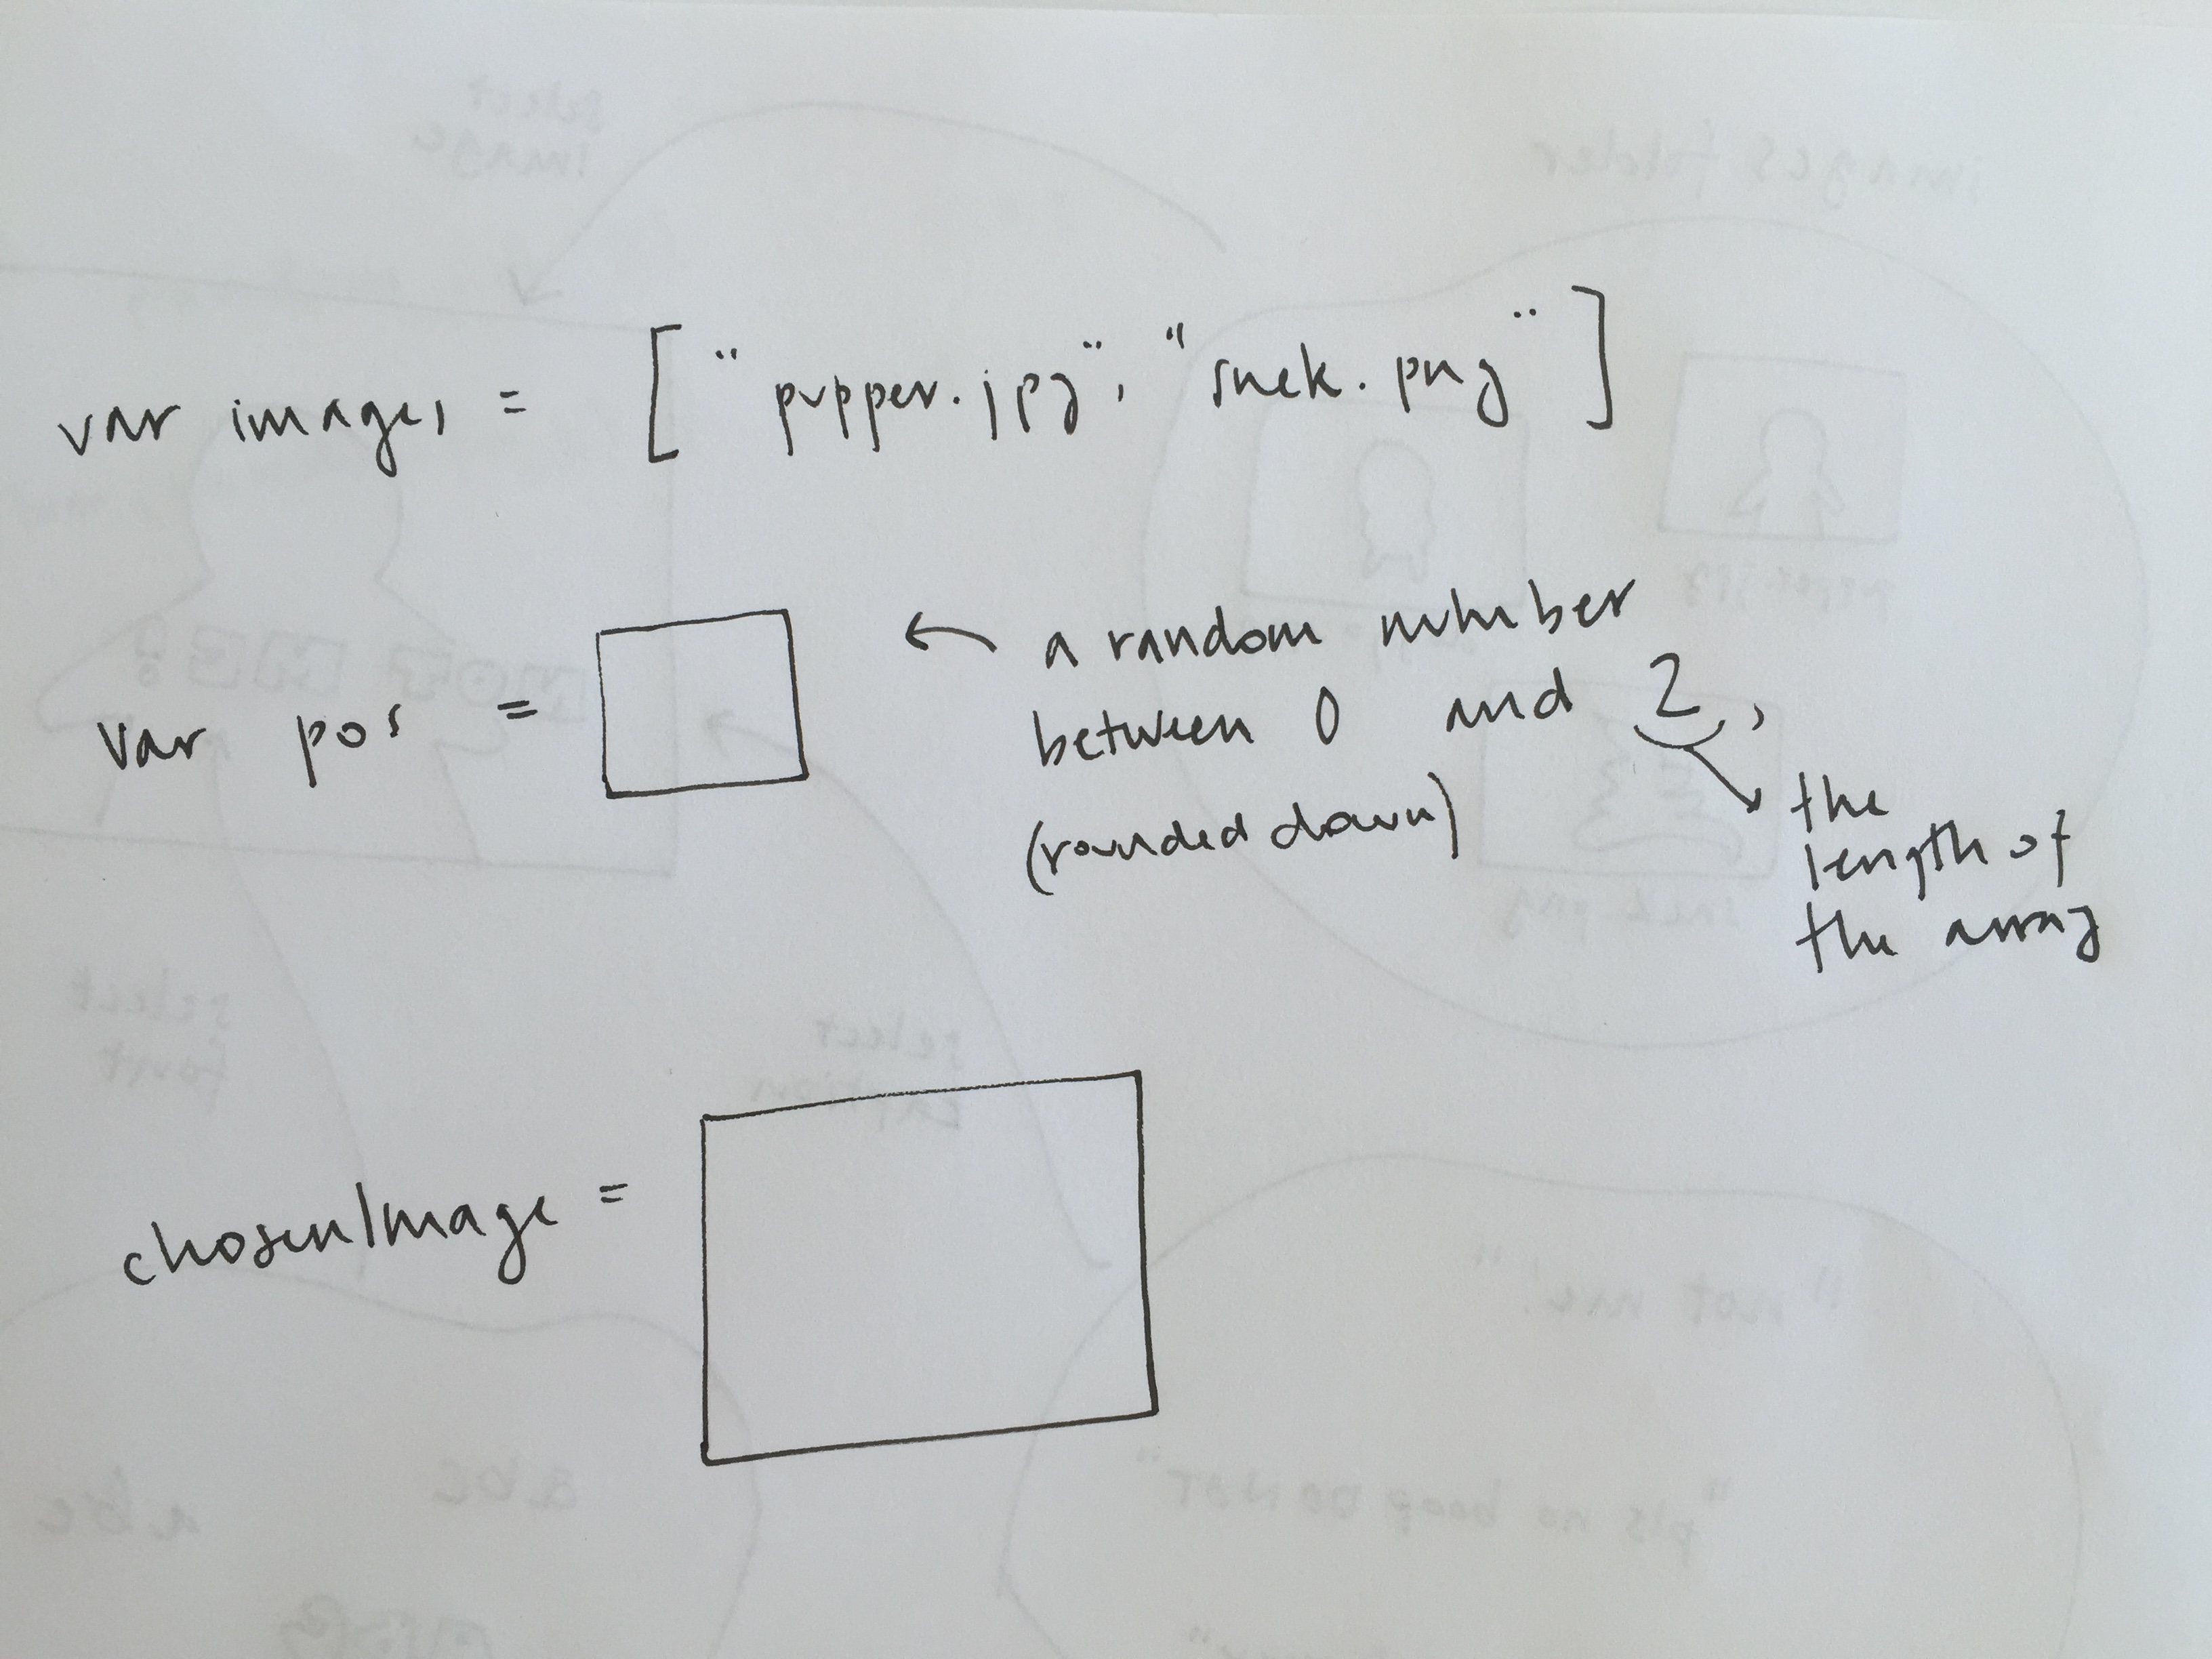 var images = ["pupper.jpg", "snek.png"]
var pos =
← a random number
between 0 and 2,
(rounded down)
the
length of
the array
chosenImage =